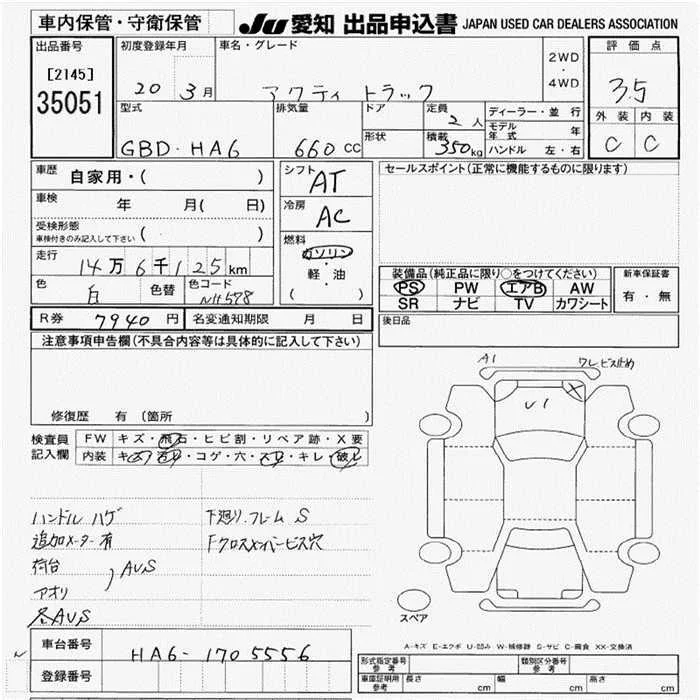 車内保管・守衛保管
JU 愛知 出品申込書 JAPAN USED CAR DEALERS ASSOCIATION
出品番号
[2145]
35051
初度登録年月
20 3月
車名・グレード
アクティ トラック
2WD
・
4WD
評価点
3.5
外装 内装
C C
型式
GBD・HA6
排気量
660 cc
ドア
形状
定員
2人
積載
350kg
ディーラー・並行
モデル年式 年
ハンドル 左・右
車歴
自家用・( )
車検
年 月( 日)
受検形態
車検付きのみ記入して下さい ( )
走行
14万6千125km
色
白
色替
色コード
NH578
シフト
AT
冷房
AC
燃料
ガソリン
軽・油
( )
セールスポイント(正常に機能するものに限ります)
装備品(純正品に限り○をつけてください)
PS PW エアB AW
SR ナビ TV カワシート
新車保証書
有・無
R券 7940円
名変通知期限 月 日
後日品
注意事項申告欄(不具合内容等は具体的に記入して下さい)
修復歴 有 (箇所 )
検査員
記入欄
FW キズ・飛石・ヒビ割・リペア跡・X要
内装 キズ・汚れ・コゲ・穴・スレ・キレ・破れ
ハンドル ハゲ
追加メーター有
荷台
アオリ
) AUS
各AUS
下廻り.フレーム S
Fクロスメンバービス穴
A1
ワレビス止め
X
U1
スペア
A-キズ E-エクボ U-凹み W-補修跡 S-サビ C-腐食 XX-交換済
車台番号
HA6-1705556
登録番号
形式指定番号
参考
類別区分番号
参考
車庫証明用
参考
長さ cm
幅 cm
高さ cm